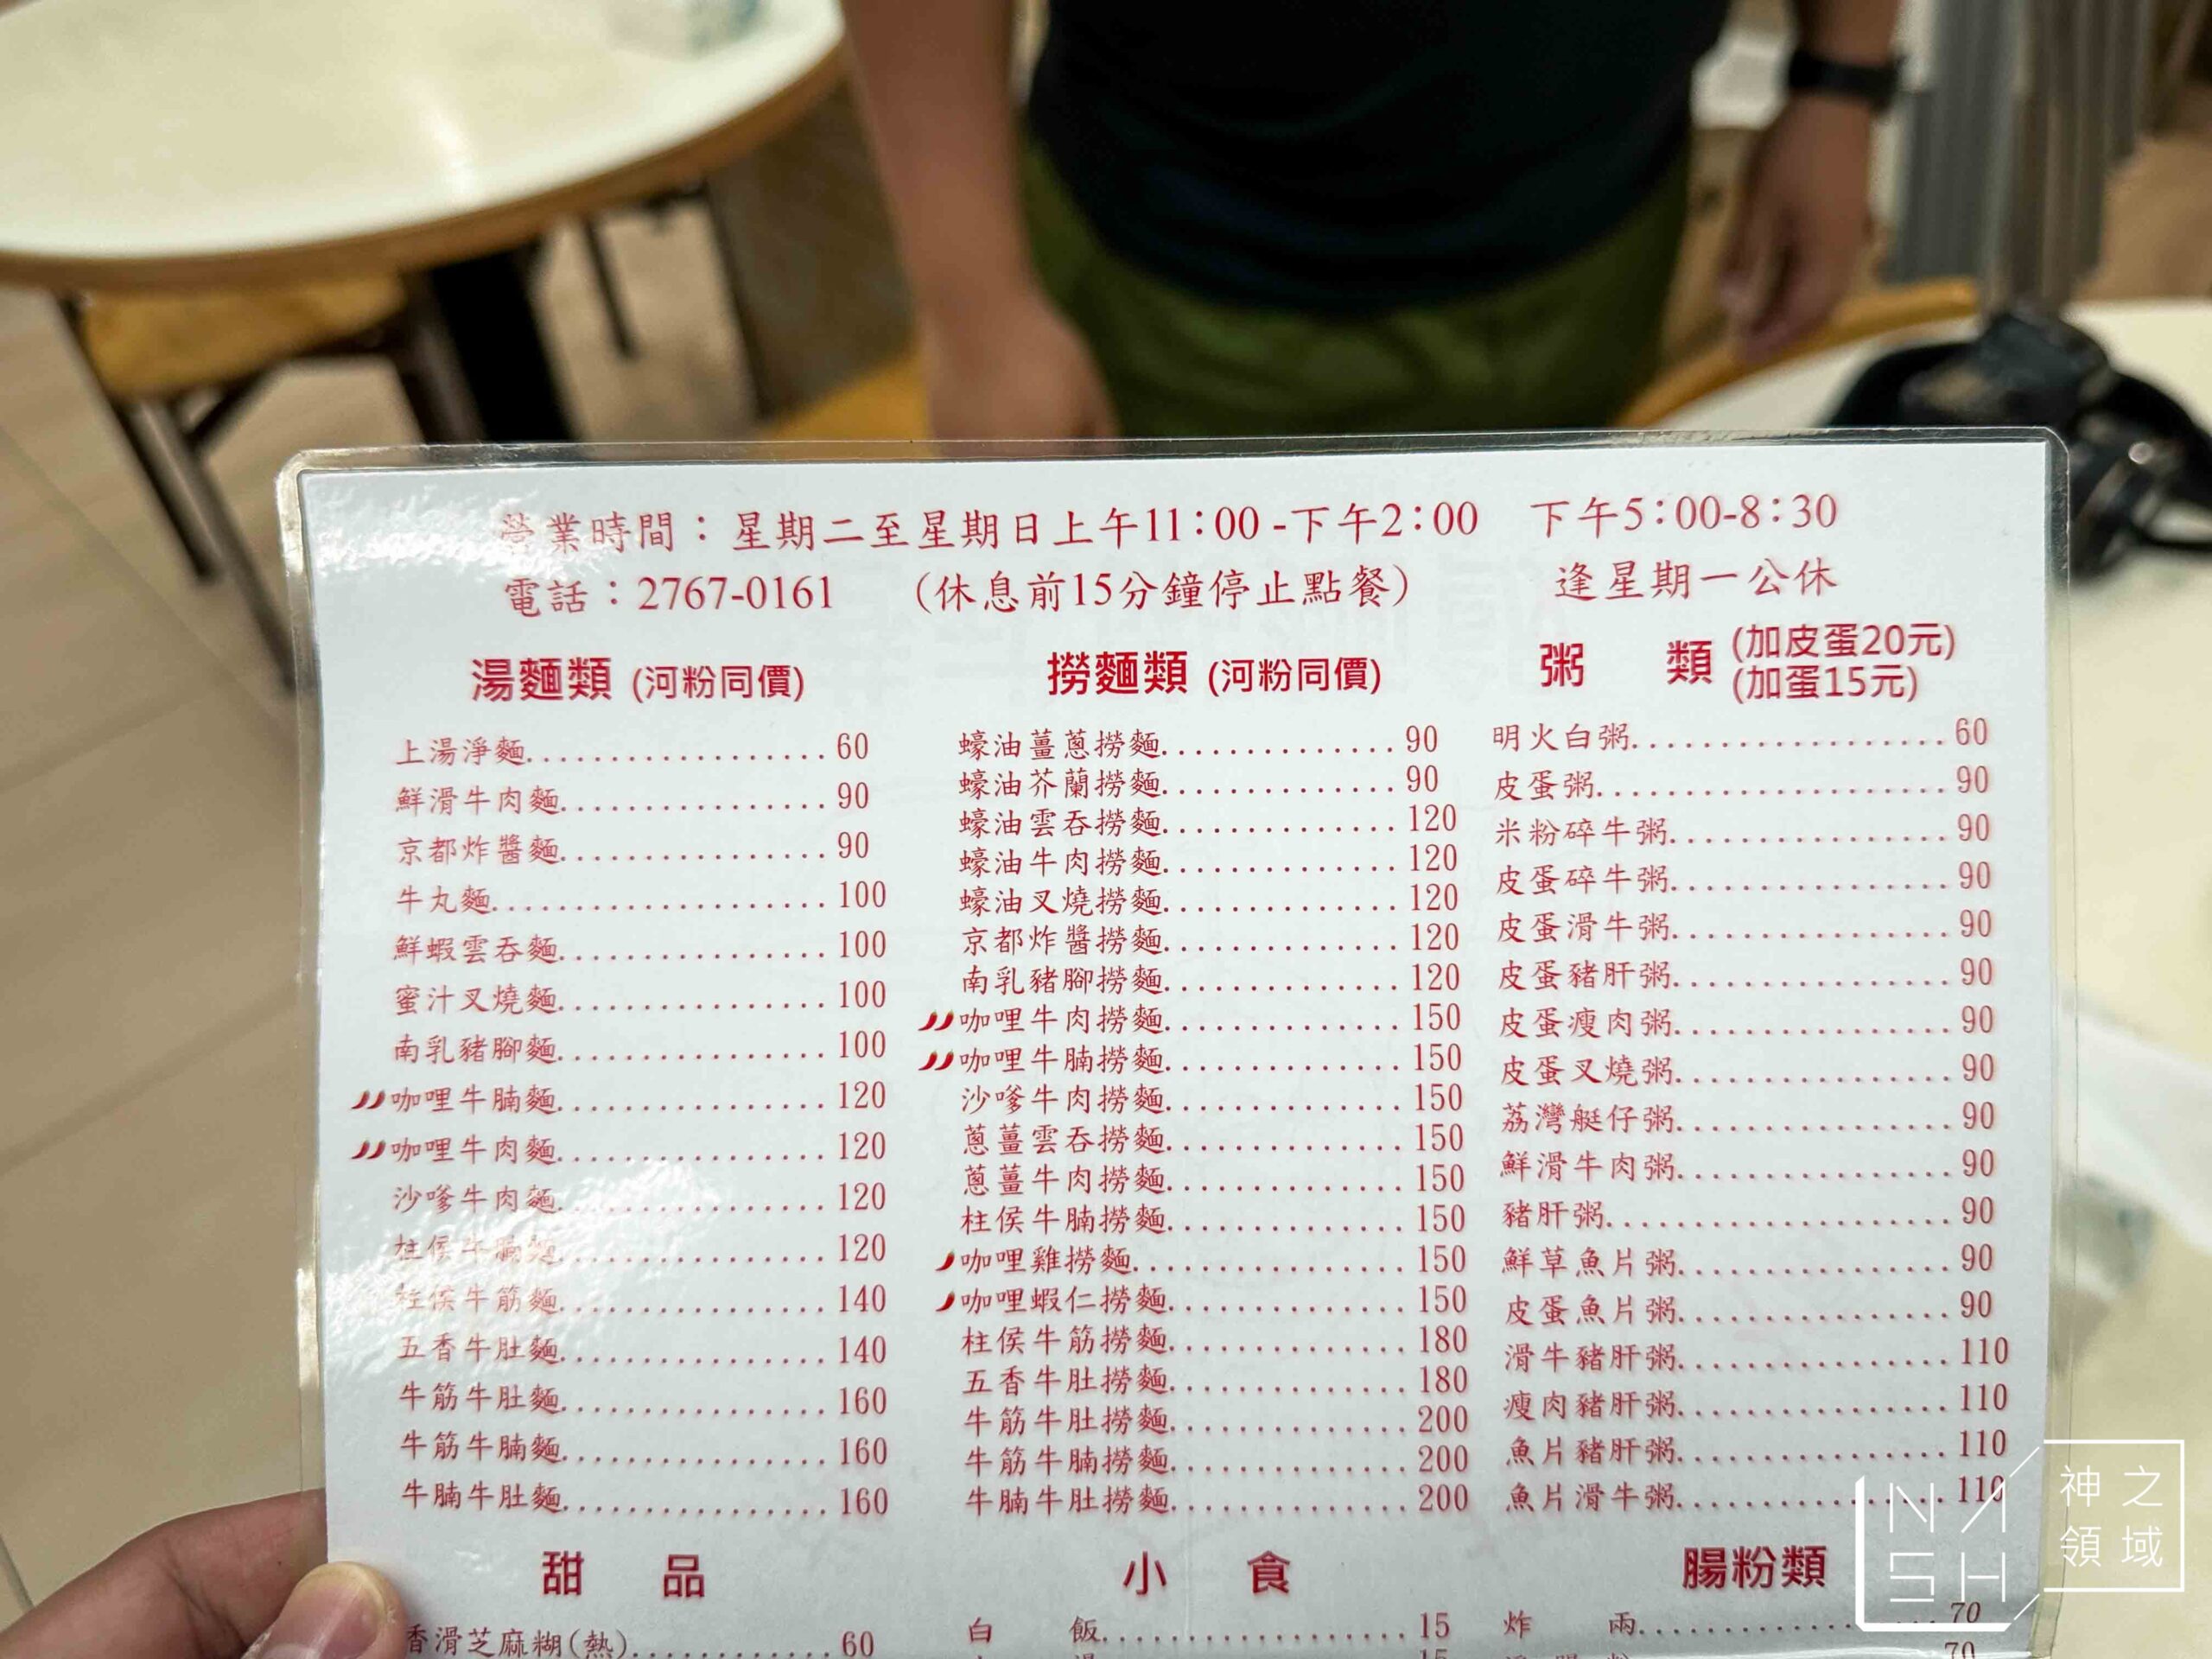 營業時間：星期二至星期日上午11：00-下午2：00 下午5：00-8：30
電話：2767-0161 （休息前15分鐘停止點餐） 逢星期一公休
湯麵類 (河粉同價)
上湯淨麵 60
鮮滑牛肉麵 90
京都炸醬麵 90
牛丸麵 100
鮮蝦雲吞麵 100
蜜汁叉燒麵 100
南乳豬腳麵 100
咖哩牛腩麵 120
咖哩牛肉麵 120
沙嗲牛肉麵 120
柱侯牛腩麵 120
柱侯牛筋麵 140
五香牛肚麵 140
牛筋牛肚麵 160
牛筋牛腩麵 160
牛腩牛肚麵 160
撈麵類 (河粉同價)
蠔油薑蔥撈麵 90
蠔油芥蘭撈麵 90
蠔油雲吞撈麵 120
蠔油牛肉撈麵 120
蠔油叉燒撈麵 120
京都炸醬撈麵 120
南乳豬腳撈麵 120
咖哩牛肉撈麵 150
咖哩牛腩撈麵 150
沙嗲牛肉撈麵 150
蔥薑雲吞撈麵 150
蔥薑牛肉撈麵 150
柱侯牛腩撈麵 150
咖哩雞撈麵 150
咖哩蝦仁撈麵 150
柱侯牛筋撈麵 180
五香牛肚撈麵 180
牛筋牛肚撈麵 200
牛筋牛腩撈麵 200
牛腩牛肚撈麵 200
粥類 (加皮蛋20元)
(加蛋15元)
明火白粥 60
皮蛋粥 90
米粉碎牛粥 90
皮蛋碎牛粥 90
皮蛋滑牛粥 90
皮蛋豬肝粥 90
皮蛋瘦肉粥 90
皮蛋叉燒粥 90
荔灣艇仔粥 90
鮮滑牛肉粥 90
豬肝粥 90
鮮草魚片粥 90
皮蛋魚片粥 90
滑牛豬肝粥 110
瘦肉豬肝粥 110
魚片豬肝粥 110
魚片滑牛粥 110
甜品
香滑芝麻糊(熱) 60
小食
白飯 15
15
腸粉類
炸兩 70
70
NASH
神之
領域